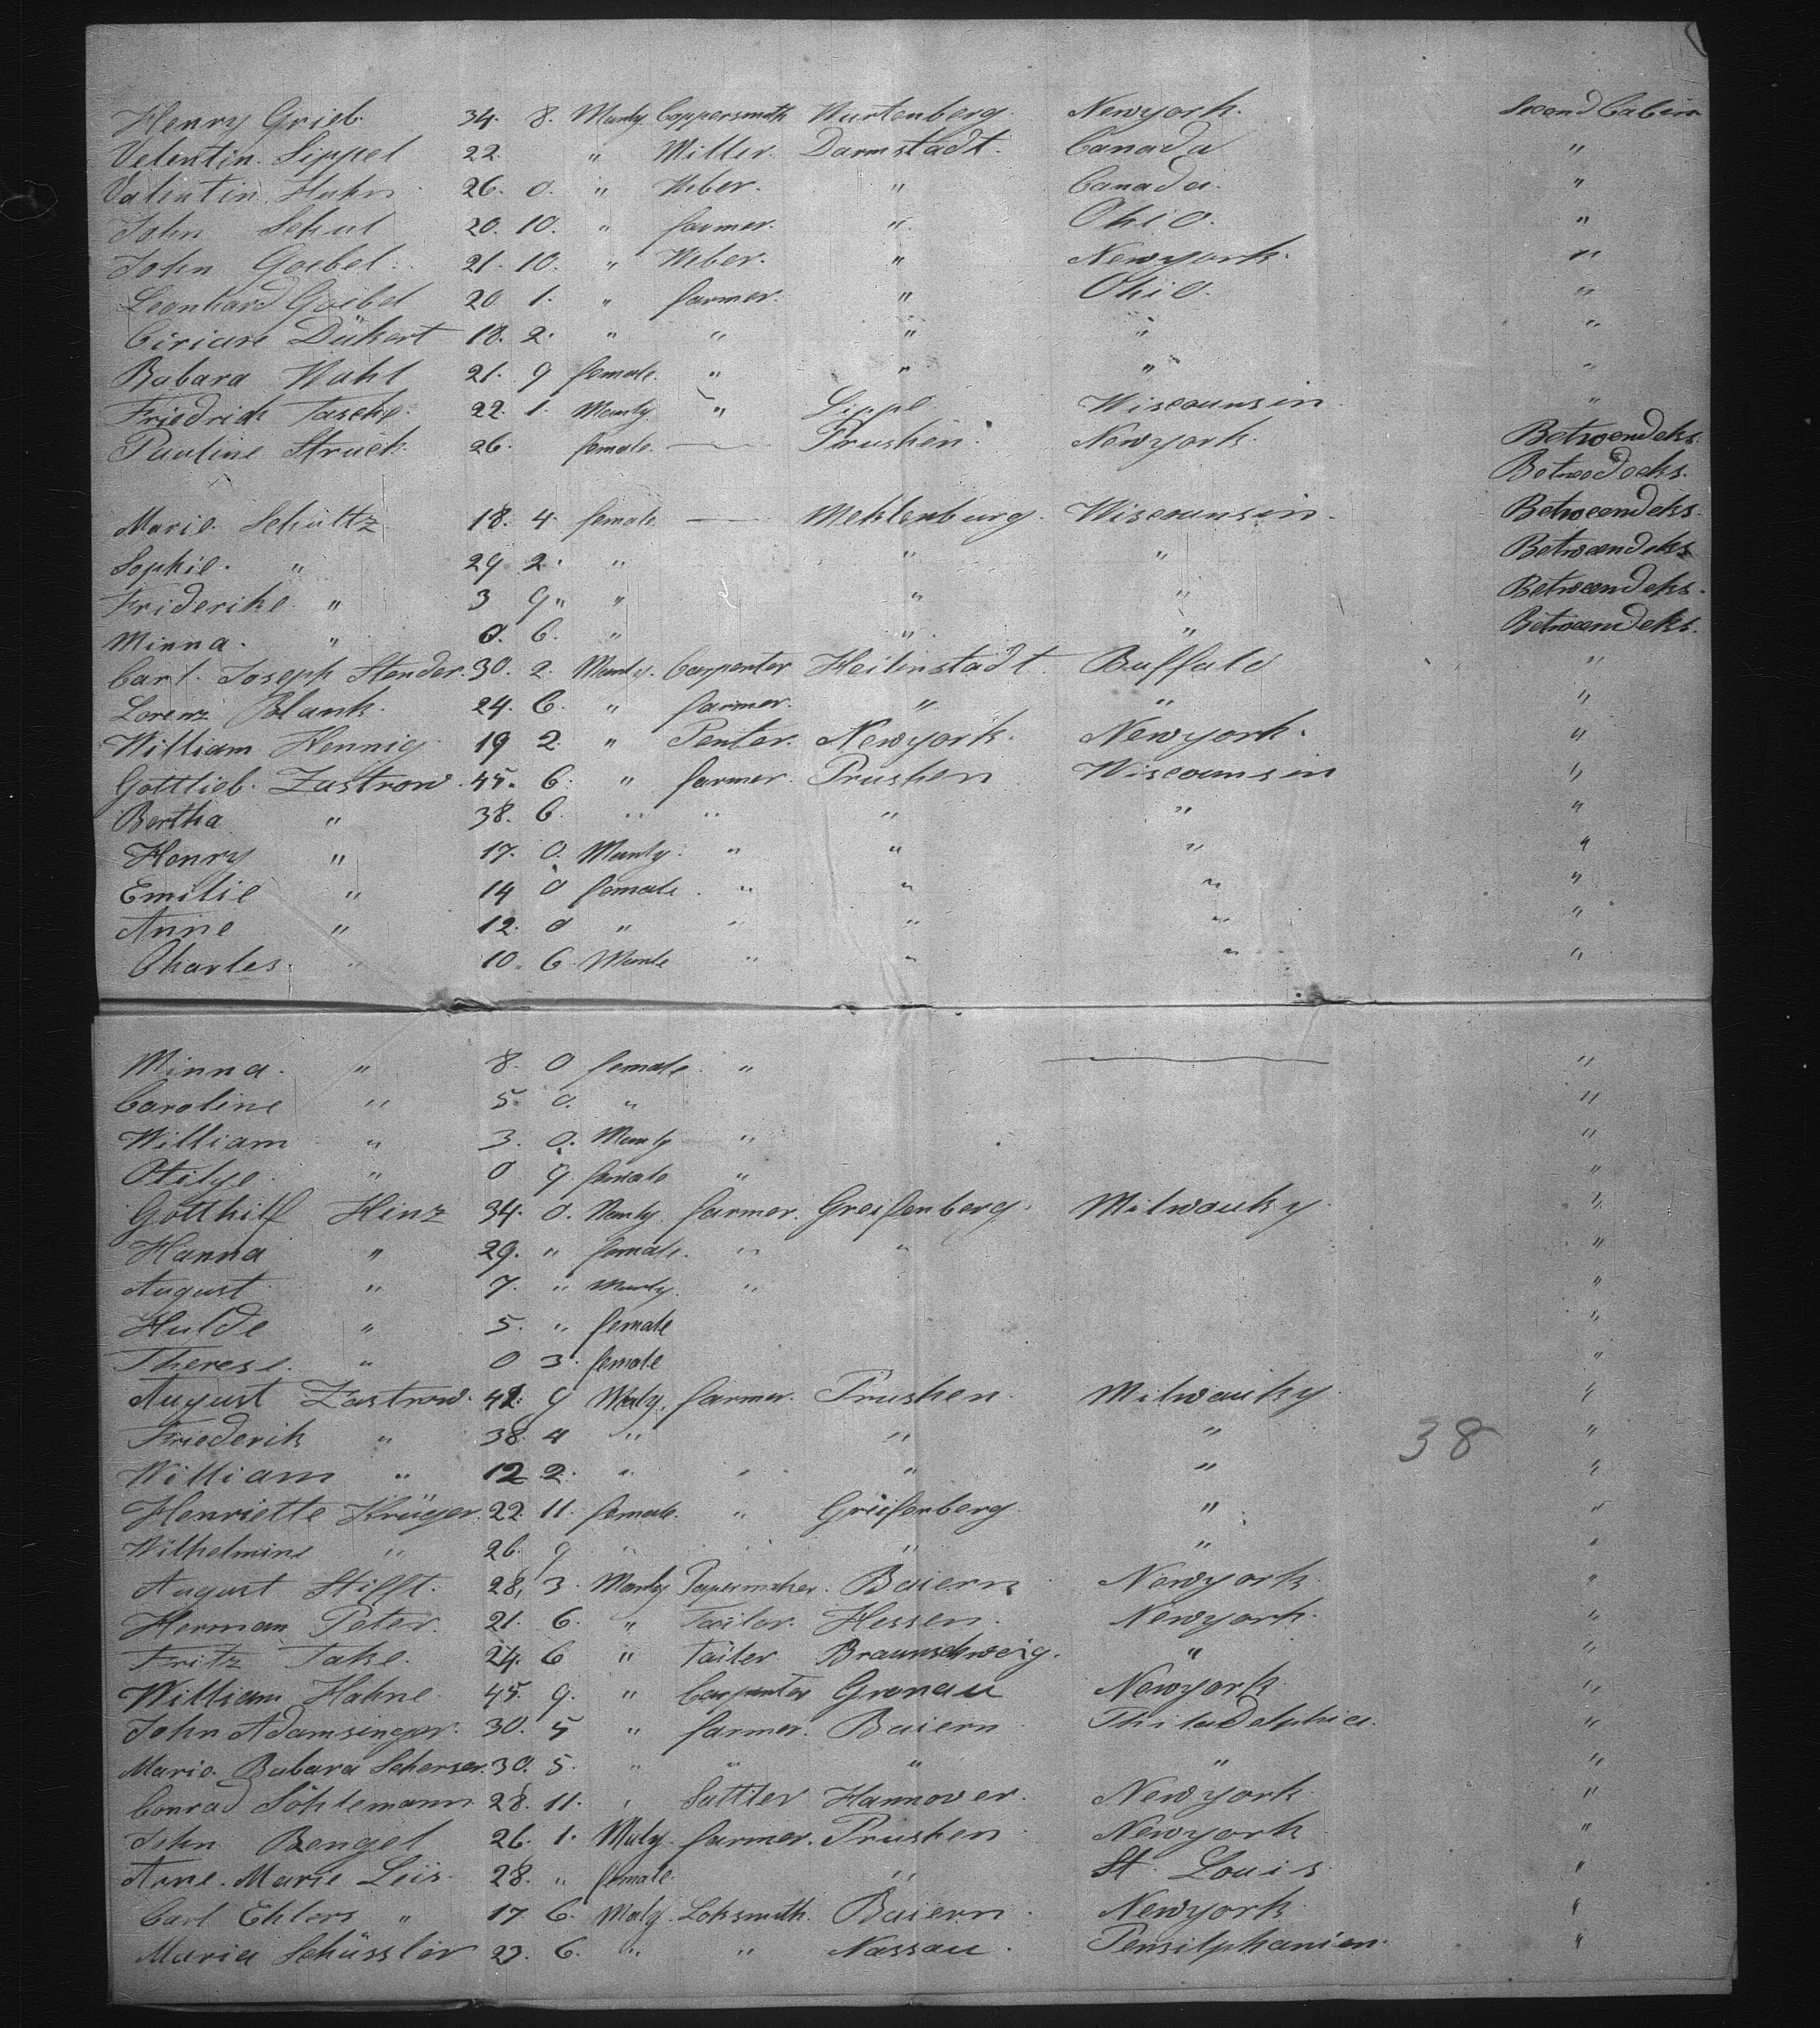 Henry Grieb. 34. 8. Manly Coppersmith Wurtenberg. Newyork. Second Cabin
Velentin. Sippel 22. " Miller. Darmstadt. Canada "
Valentin Huhn 26. 0. " Weber. " Canada. "
John Schul 20. 10. " farmer. " Ohio. "
John Goebel. 21. 10. " Weber. " Newyork. "
Leonhard Goebel 20 1. " farmer. " Ohio. "
Dükert 18. 2. " " " " "
Babara Wahl 21. 9 female. " " " "
Friedrich Tasche. 22. 1. Manly " Lippe Wiscounsin "
Pauline Struck 26. female. — Prushen. Newyork. Betweendeks.
Betweedecks.
Marie. Schültz 18. 4. female — Meklenburg. Wiscounsin. Betweendeks.
Sophie. " 29. 2. " " " Betweendeks
Friderike " 3 9 " " " " Betweendeks.
Minna. " 0. 6. " " " Betweendeks.
Carl. Joseph Stender. 30. 2. Manly. Carpenter Heilinstadt Buffalo "
Lorenz Blank. 24. 6. " farmer. " " "
William Hennig 19 2. " Penter. Newyork. Newyork. "
Gottlieb. Zastrow. 45. 6. " farmer. Prushen Wiscounsin "
Bertha " 38. 6. " " " " "
Henry " 17. 0. Manly. " " " "
Emilie " 14 0 female. " " " "
Anne " 12. 0 " " " " "
Charles. " 10. 6. Manle " " " "
Minna. " 8. 0 female. " — "
Caroline " 5. 0. " "
William " 3. 0. Manly " "
Otilge. " 0 9. female " "
Gotthilf Hinz 34. 0. Manly farmer. Greifenberg. Milwauky. "
Hanna " 29. " female. " " "
August " 7. " Manly. " "
Hulde " 5. " female "
Therese. " 0 3. female "
August Zastrow. 42. 9 Maly. farmer. Prushen. Milwauky. "
Friederik " 38. 4 " " " 38 "
William " 12 2. " " " " "
Henriette Krüger. 22. 11. female. " Greifenberg. " "
Wilhelmine " 26. 9 " " " " "
August Stifft. 28, 3. Manly Papermaker. Baiern Newyork. "
Herman Peter. 21. 6. " Tailor. Hessen. Newyork. "
Fritz Take. 24. 6 " Tailer Braunschweig. " "
William Hahne 45. 9. " Carpenter Gronau Newyork. "
John Adamsinger. 30. 5 " farmer. Baiern Philadelphia. "
Marie. Babara Scherser. 30. 5. " " " " "
Conrad Söhlemann 28. 11. " Sattler Hannover. Newyork. "
John Bengel 26. 1. Maly. farmer. Prushen Newyork "
Anne. Marie Leis. 28. " female. " St. Louis. "
Carl Ehlers " 17. 6. Maly. Loksmith. Baiern. Newyork. "
Maria Schüssler 23. 6. " " Nassau. Pensilphanien. "